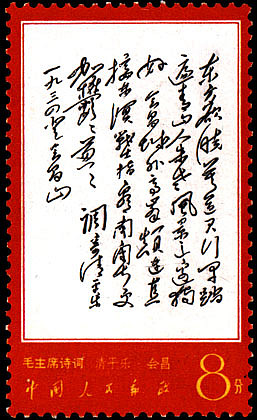 东方欲晓莫道君行早踏
遍青山人未老風景这边独
好会昌城外高峯颠連直
接東溟戰士指看南粤更
加鬱々葱々
调寄清平乐
一九三四 会昌山
毛主席诗词 清平乐 会昌
中国人民邮政 8分